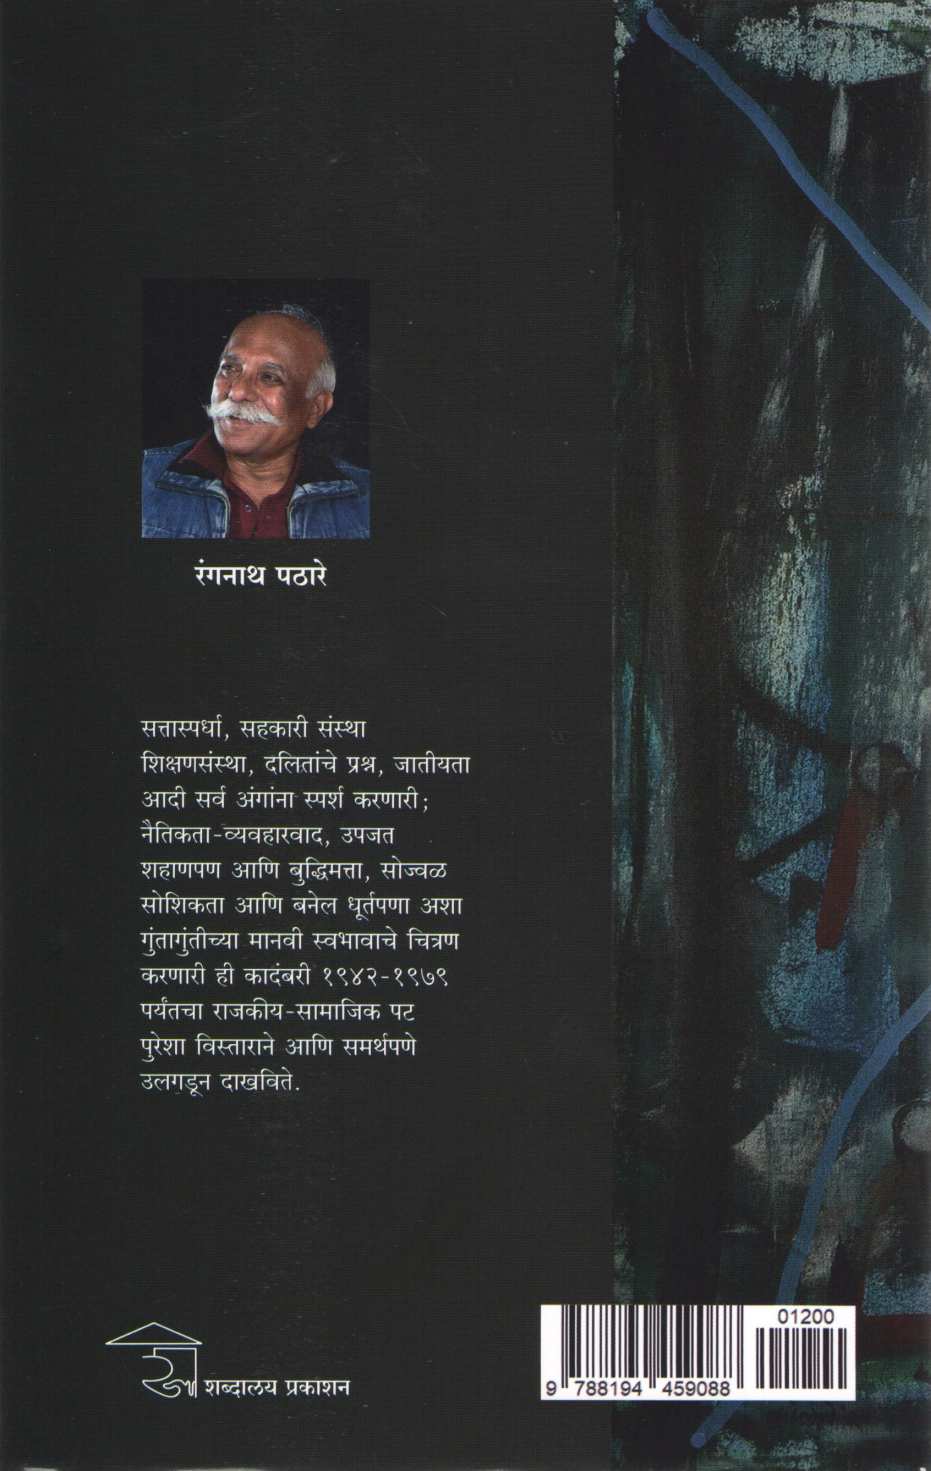 रंगनाथ पठारे
सत्तास्पर्धा, सहकारी संस्था
शिक्षणसंस्था, दलितांचे प्रश्न, जातीयता
आदी सर्व अंगांना स्पर्श करणारी;
नैतिकता-व्यवहारवाद, उपजत
शहाणपण आणि बुद्धिमत्ता, सोज्वळ
सोशिकता आणि बनेल धूर्तपणा अशा
गुंतागुंतीच्या मानवी स्वभावाचे चित्रण
करणारी ही कादंबरी १९४२-१९७९
पर्यंतचा राजकीय-सामाजिक पट
पुरेशा विस्ताराने आणि समर्थपणे
उलगडून दाखविते.
शब्दालय प्रकाशन
01200
9 788194 459088